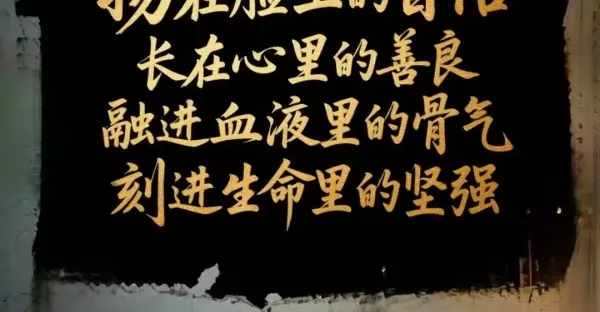 扬在脸上的
长在心里的善良
融进血液里的骨气
刻进生命里的坚强